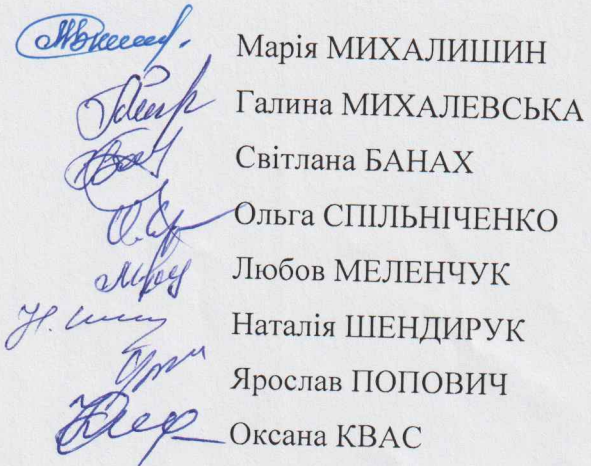 Марія МИХАЛИШИН
Галина МИХАЛЕВСЬКА
Світлана БАНАХ
Ольга СПІЛЬНІЧЕНКО
Любов МЕЛЕНЧУК
Наталія ШЕНДИРУК
Ярослав ПОПОВИЧ
Оксана КВАС